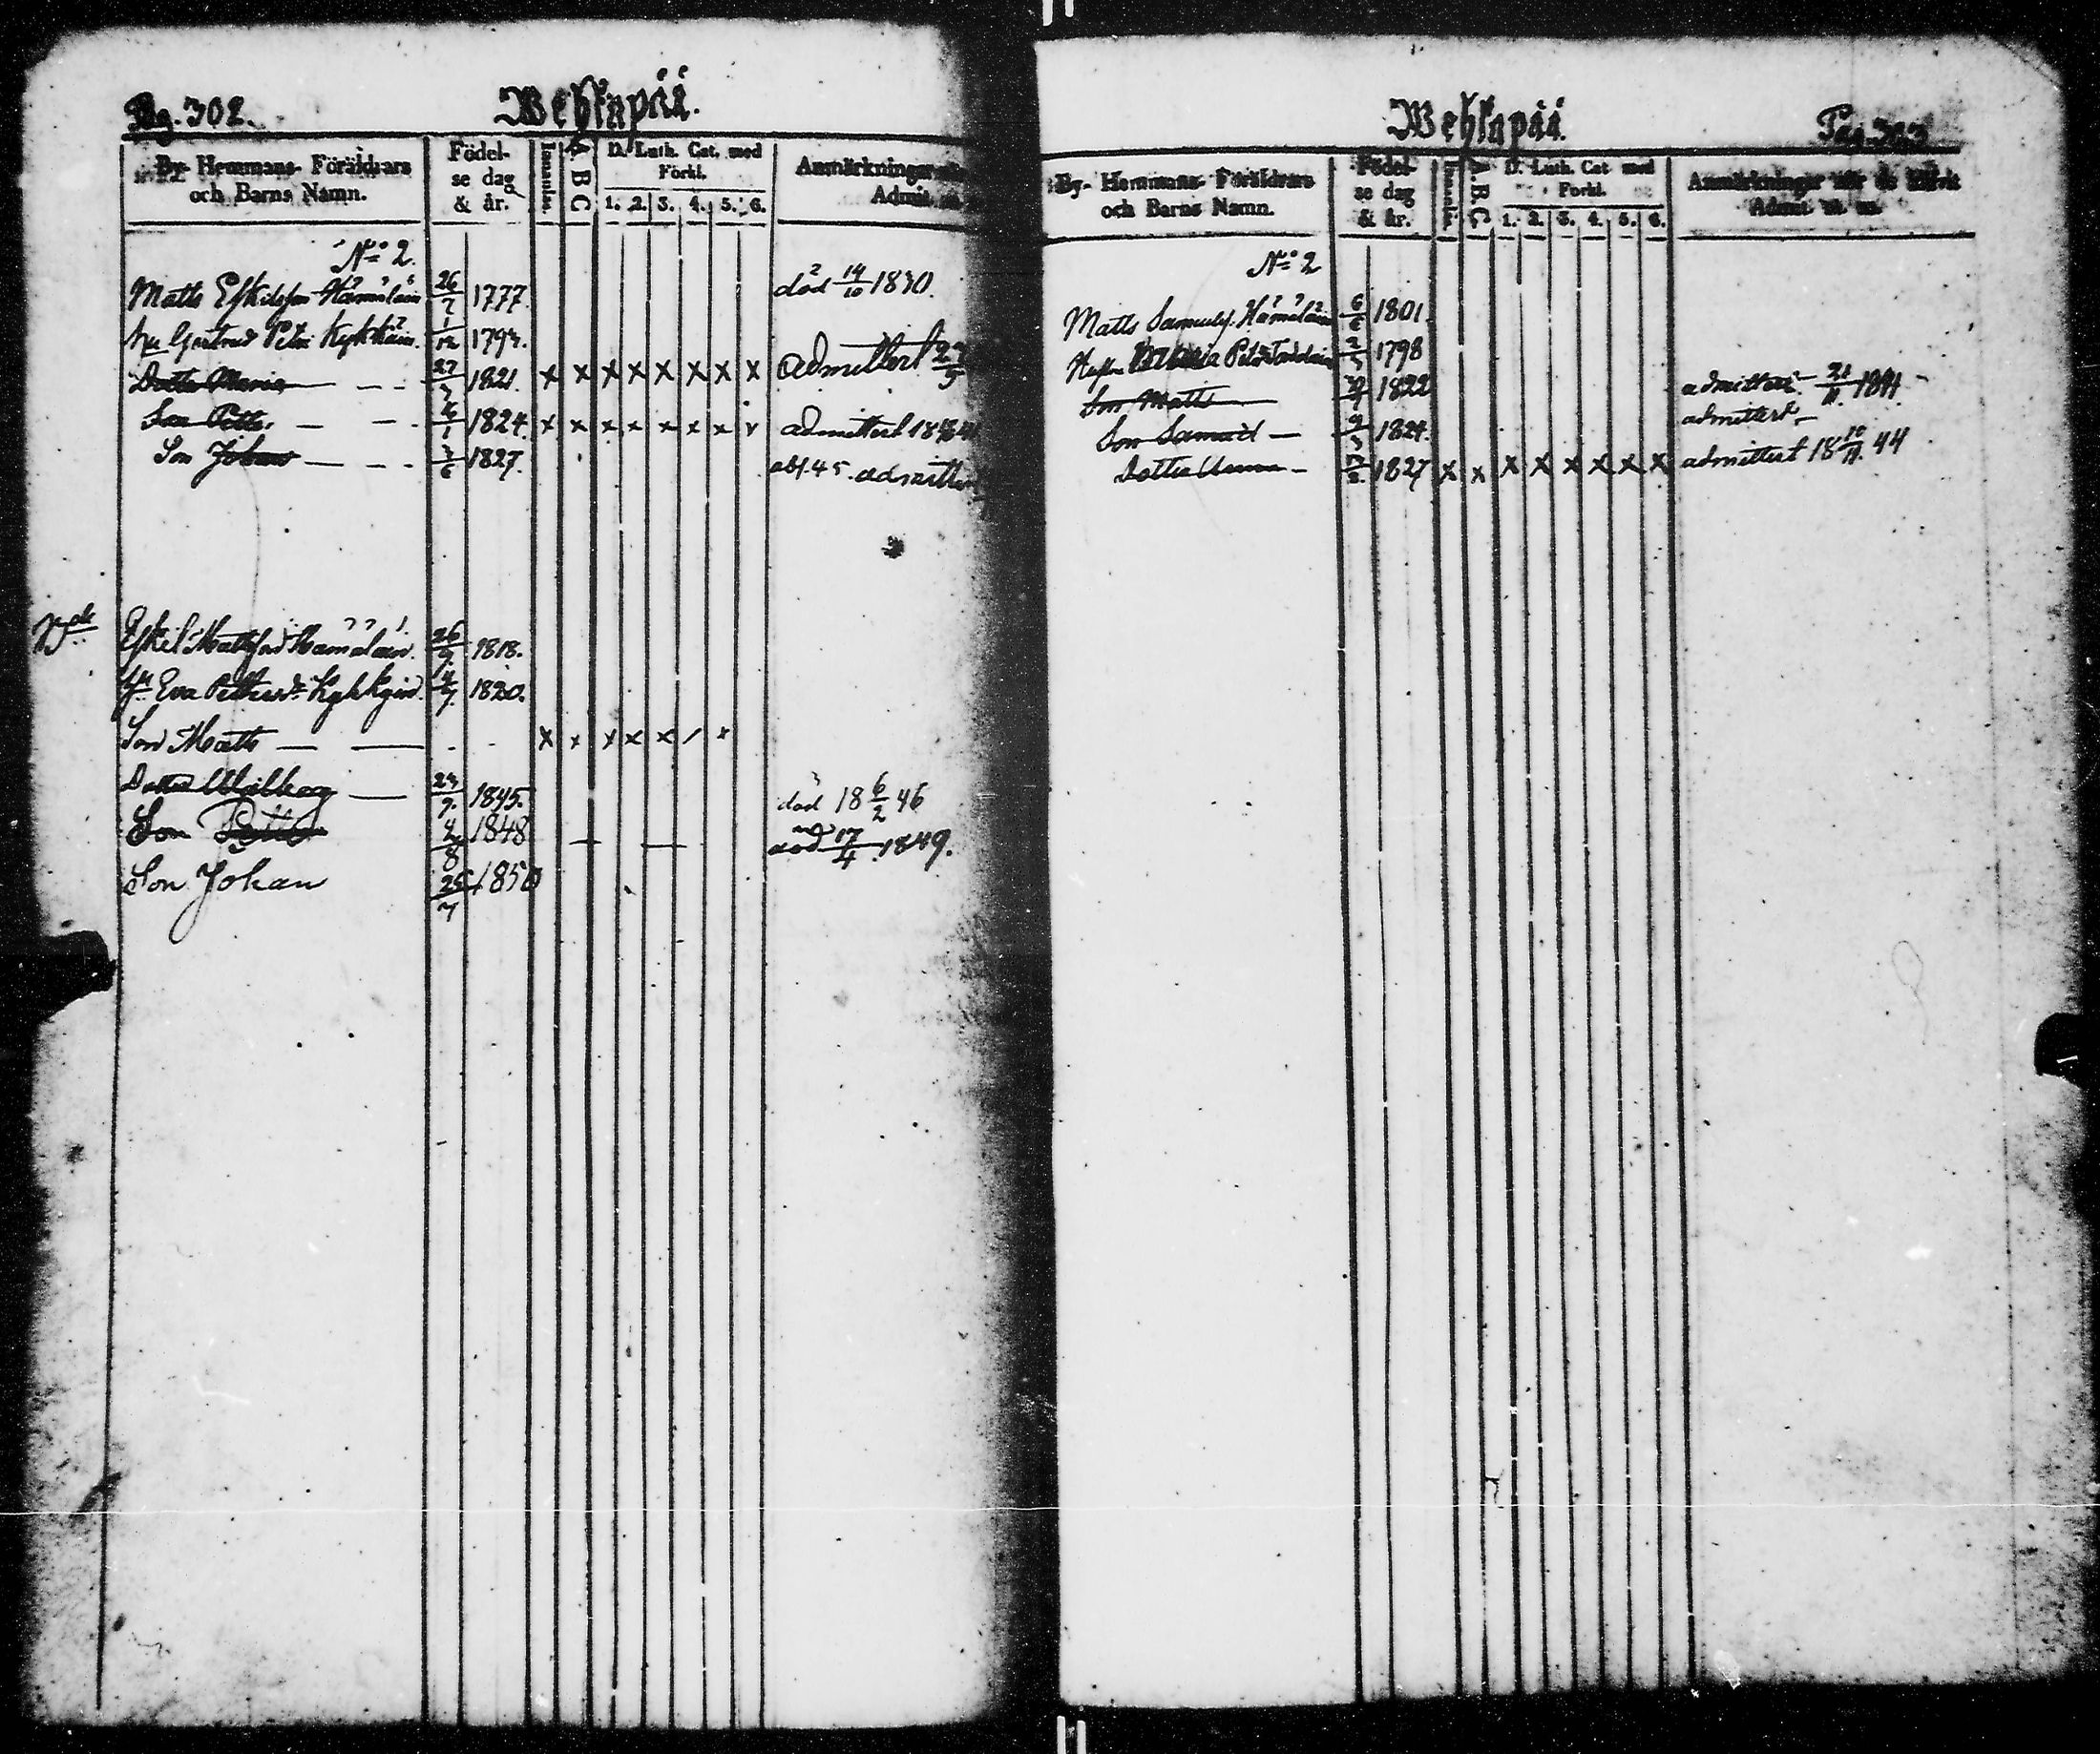 Pag. 302.
Wehkapää.
By- Hemmans- Föräldrars
och Barns Namn.
Födel-
se dag
& år.
Innanlär.
A B C
D. Luth. Cat. med
Förkl.
1. 2. 3. 4. 5. 6.
Anmärkningar
Admit.
N:o 2.
Matts Eskilsson Hämäläin 26/7 1777. död 14/10 1830.
Hu Gertrud Petri Kykkäin. 1/12 1794.
Dotte Maria — — 27/3 1821. x x x x x x x x admittert
Son Petter — — 1824. x x x x x x x x admittert
Son Johan — — 3/6 1827. abs. 45. admitter
Eskel Mattsson Hämäläin. 26/9. 1818.
Hu Eva Pettersdr Kykkyin. 4/7. 1820.
Son Matts — — x x x x x / x
Dotter Walborg — 23/9. 1845. död 18 6/2 46
Son Petter 4/8 1848 — — död 17/4 1849.
Son Johan 25/7 1850
Wehkapää.
Pag. 303
By- Hemmans- Föräldrars
och Barns Namn.
Födel-
se dag
& år.
Innanlär.
A B C
D. Luth. Cat. med
Förkl.
1. 2. 3. 4. 5. 6.
Anmärkningar när de blifvit
Admit. m. m.
N:o 2
Matts Samuelss. Hämäläin 6/6 1801.
Hustru Maria Petrd. 1798
Son Matts — 1822 admittert 21/11 1841.
Son Samuel — 9/3 1824. admittert —
Dotter Anna — 1827 x x x x x x x x admittert 18 10/11 44